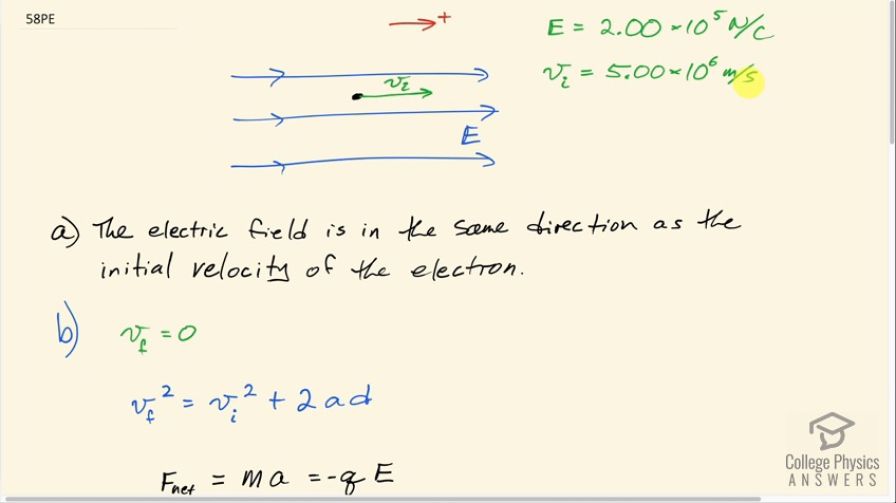 58PE
+
E = 2.00 × 10⁵ N/C
v_i = 5.00 × 10⁶ m/s
v_i
E
a) The electric field is in the same direction as the
initial velocity of the electron.
b) v_f = 0
v_f² = v_i² + 2ad
F_net = ma = -qE
College Physics
ANSWERS